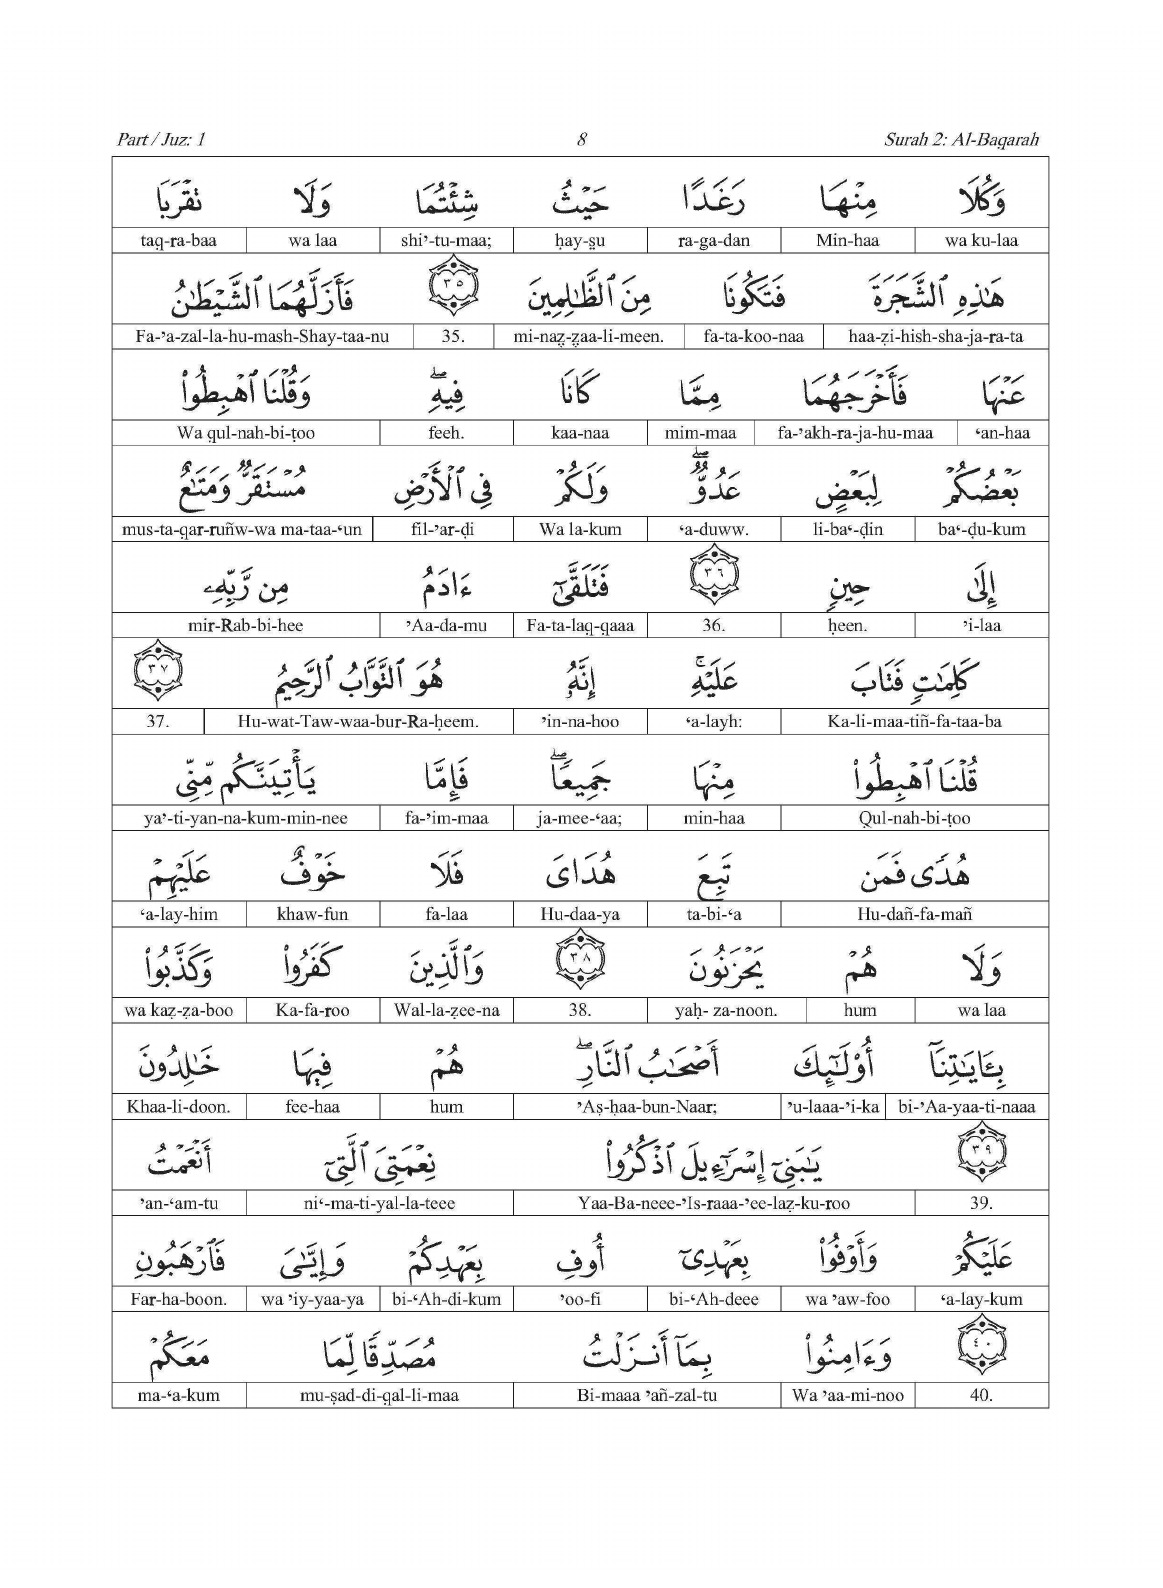 Part / Juz: 1 8 Surah 2: Al-Baqarah
وَكُلَا مِنْهَا رَغَدًا حَيْثُ شِئْتُمَا وَلَا تَقْرَبَا
taq-ra-baa wa laa shi’-tu-maa; ḥay-s̱u ra-ga-dan Min-haa wa ku-laa
هَٰذِهِ ٱلشَّجَرَةَ فَتَكُونَا مِنَ ٱلظَّٰلِمِينَ ٣٥ فَأَزَلَّهُمَا ٱلشَّيْطَٰنُ
Fa-’a-zal-la-hu-mash-Shay-taa-nu 35. mi-naẓ-ẓaa-li-meen. fa-ta-koo-naa haa-ẕi-hish-sha-ja-ra-ta
عَنْهَا فَأَخْرَجَهُمَا مِمَّا كَانَا فِيهِ ۖ وَقُلْنَا ٱهْبِطُوا۟
Wa qul-nah-bi-ṭoo feeh. kaa-naa mim-maa fa-’akh-ra-ja-hu-maa ‘an-haa
بَعْضُكُمْ لِبَعْضٍ عَدُوٌّ ۖ وَلَكُمْ فِى ٱلْأَرْضِ مُسْتَقَرٌّ وَمَتَٰعٌ
mus-ta-qar-ruñw-wa ma-taa-‘un fil-’ar-ḍi Wa la-kum ‘a-duww. li-ba‘-ḍin ba‘-ḍu-kum
إِلَىٰ حِينٍ ٣٦ فَتَلَقَّىٰٓ ءَادَمُ مِن رَّبِّهِۦ
mir-Rab-bi-hee ’Aa-da-mu Fa-ta-laq-qaaa 36. ḥeen. ’i-laa
كَلِمَٰتٍ فَتَابَ عَلَيْهِ ۚ إِنَّهُۥ هُوَ ٱلتَّوَّابُ ٱلرَّحِيمُ ٣٧
37. Hu-wat-Taw-waa-bur-Ra-ḥeem. ’in-na-hoo ‘a-layh: Ka-li-maa-tiñ-fa-taa-ba
قُلْنَا ٱهْبِطُوا۟ مِنْهَا جَمِيعًا ۖ فَإِمَّا يَأْتِيَنَّكُم مِّنِّى
ya’-ti-yan-na-kum-min-nee fa-’im-maa ja-mee-‘aa; min-haa Qul-nah-bi-ṭoo
هُدًى فَمَن تَبِعَ هُدَاىَ فَلَا خَوْفٌ عَلَيْهِمْ
‘a-lay-him khaw-fun fa-laa Hu-daa-ya ta-bi-‘a Hu-dañ-fa-mañ
وَلَا هُمْ يَحْزَنُونَ ٣٨ وَٱلَّذِينَ كَفَرُوا۟ وَكَذَّبُوا۟
wa kaẕ-ẕa-boo Ka-fa-roo Wal-la-ẕee-na 38. yaḥ- za-noon. hum wa laa
بِـَٔايَٰتِنَآ أُو۟لَٰٓئِكَ أَصْحَٰبُ ٱلنَّارِ ۖ هُمْ فِيهَا خَٰلِدُونَ
Khaa-li-doon. fee-haa hum ’Aṣ-ḥaa-bun-Naar; ’u-laaa-’i-ka bi-’Aa-yaa-ti-naaa
٣٩ يَٰبَنِىٓ إِسْرَٰٓءِيلَ ٱذْكُرُوا۟ نِعْمَتِىَ ٱلَّتِىٓ أَنْعَمْتُ
’an-‘am-tu ni‘-ma-ti-yal-la-teee Yaa-Ba-neee-’Is-raaa-’ee-laẕ-ku-roo 39.
عَلَيْكُمْ وَأَوْفُوا۟ بِعَهْدِىٓ أُوفِ بِعَهْدِكُمْ وَإِيَّٰىَ فَٱرْهَبُونِ
Far-ha-boon. wa ’iy-yaa-ya bi-‘Ah-di-kum ’oo-fi bi-‘Ah-deee wa ’aw-foo ‘a-lay-kum
٤٠ وَءَامِنُوا۟ بِمَآ أَنزَلْتُ مُصَدِّقًا لِّمَا مَعَكُمْ
ma-‘a-kum mu-ṣad-di-qal-li-maa Bi-maaa ’añ-zal-tu Wa ’aa-mi-noo 40.